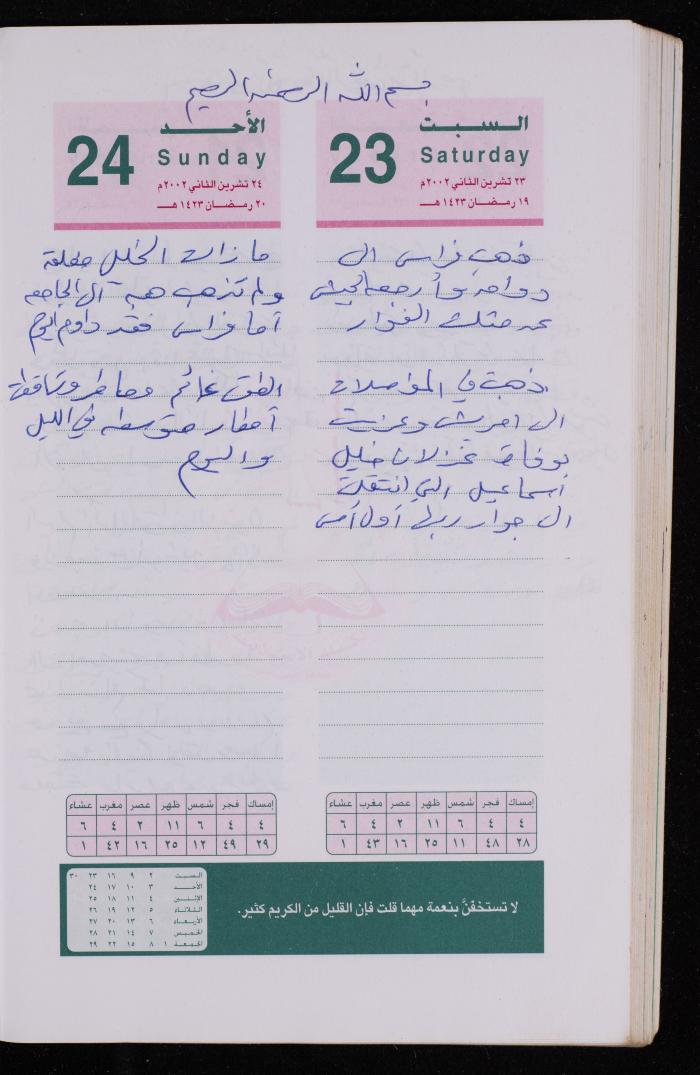 بسم الله الرحمن الرحيم
السبت
23
Saturday
٢٣ تشرين الثاني ٢٠٠٢م
١٩ رمضان ١٤٢٣ هـ
ذهب فراس الى
دوامه وأرجعه الجيش
عند مثلث الفوار
ذهبت في المواصلات
الى امريش وعزيت
بوفاة غزلان خليل
اسماعيل التي انتقلت
الى جوار ربها أول أمس
الأحد
24
Sunday
٢٤ تشرين الثاني ٢٠٠٢م
٢٠ رمضان ١٤٢٣ هـ
ما زالت الخليل مغلقة
ولم تذهب هبه الى الجامعه
أما فراس فقد داوم اليوم
الطقس غائم وماطر وتساقطت
أمطار متوسطه في الليل
واليوم
إمساك فجر شمس ظهر عصر مغرب عشاء
٤ ٤ ٦ ١١ ٢ ٤ ٦
٢٨ ٤٨ ١١ ٢٥ ١٦ ٤٣ ١
إمساك فجر شمس ظهر عصر مغرب عشاء
٤ ٤ ٦ ١١ ٢ ٤ ٦
٢٩ ٤٩ ١٢ ٢٥ ١٦ ٤٢ ١
لا تستخفّنَّ بنعمة مهما قلت فإن القليل من الكريم كثير.
السبت ٢ ٩ ١٦ ٢٣ ٣٠
الأحد ٣ ١٠ ١٧ ٢٤
الإثنين ٤ ١١ ١٨ ٢٥
الثلاثاء ٥ ١٢ ١٩ ٢٦
الأربعاء ٦ ١٣ ٢٠ ٢٧
الخميس ٧ ١٤ ٢١ ٢٨
الجمعة ١ ٨ ١٥ ٢٢ ٢٩